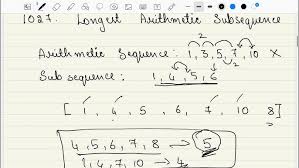 1027. Longest Arithmetic Subsequence
2
Arithmetic Sequence: 1, 3, 5, 7, 10 X
2
Subsequence: 1, 4, 5, 6
[ 1 4 5 6 7 10 8 ]
4, 5, 6, 7, 8 → 5
1, 4, 7, 10 → 4